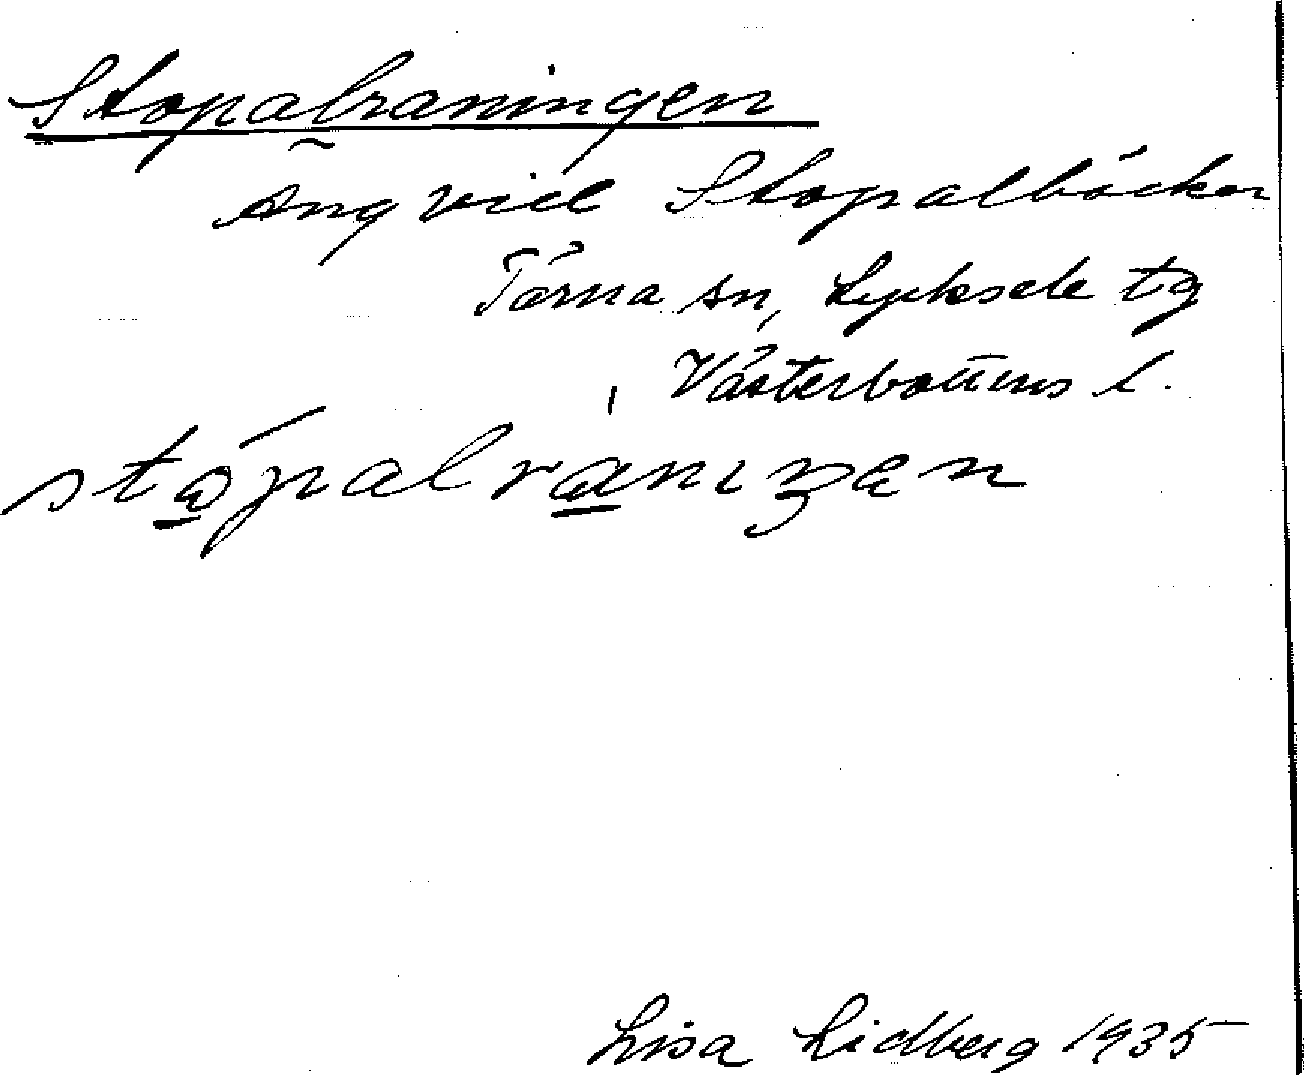 Stopalraningen
äng vid Stopalbäcken
Tärna sn, Lycksele tg
Västerbottens l.
stopalraniŋen
Lisa Lidberg 1935